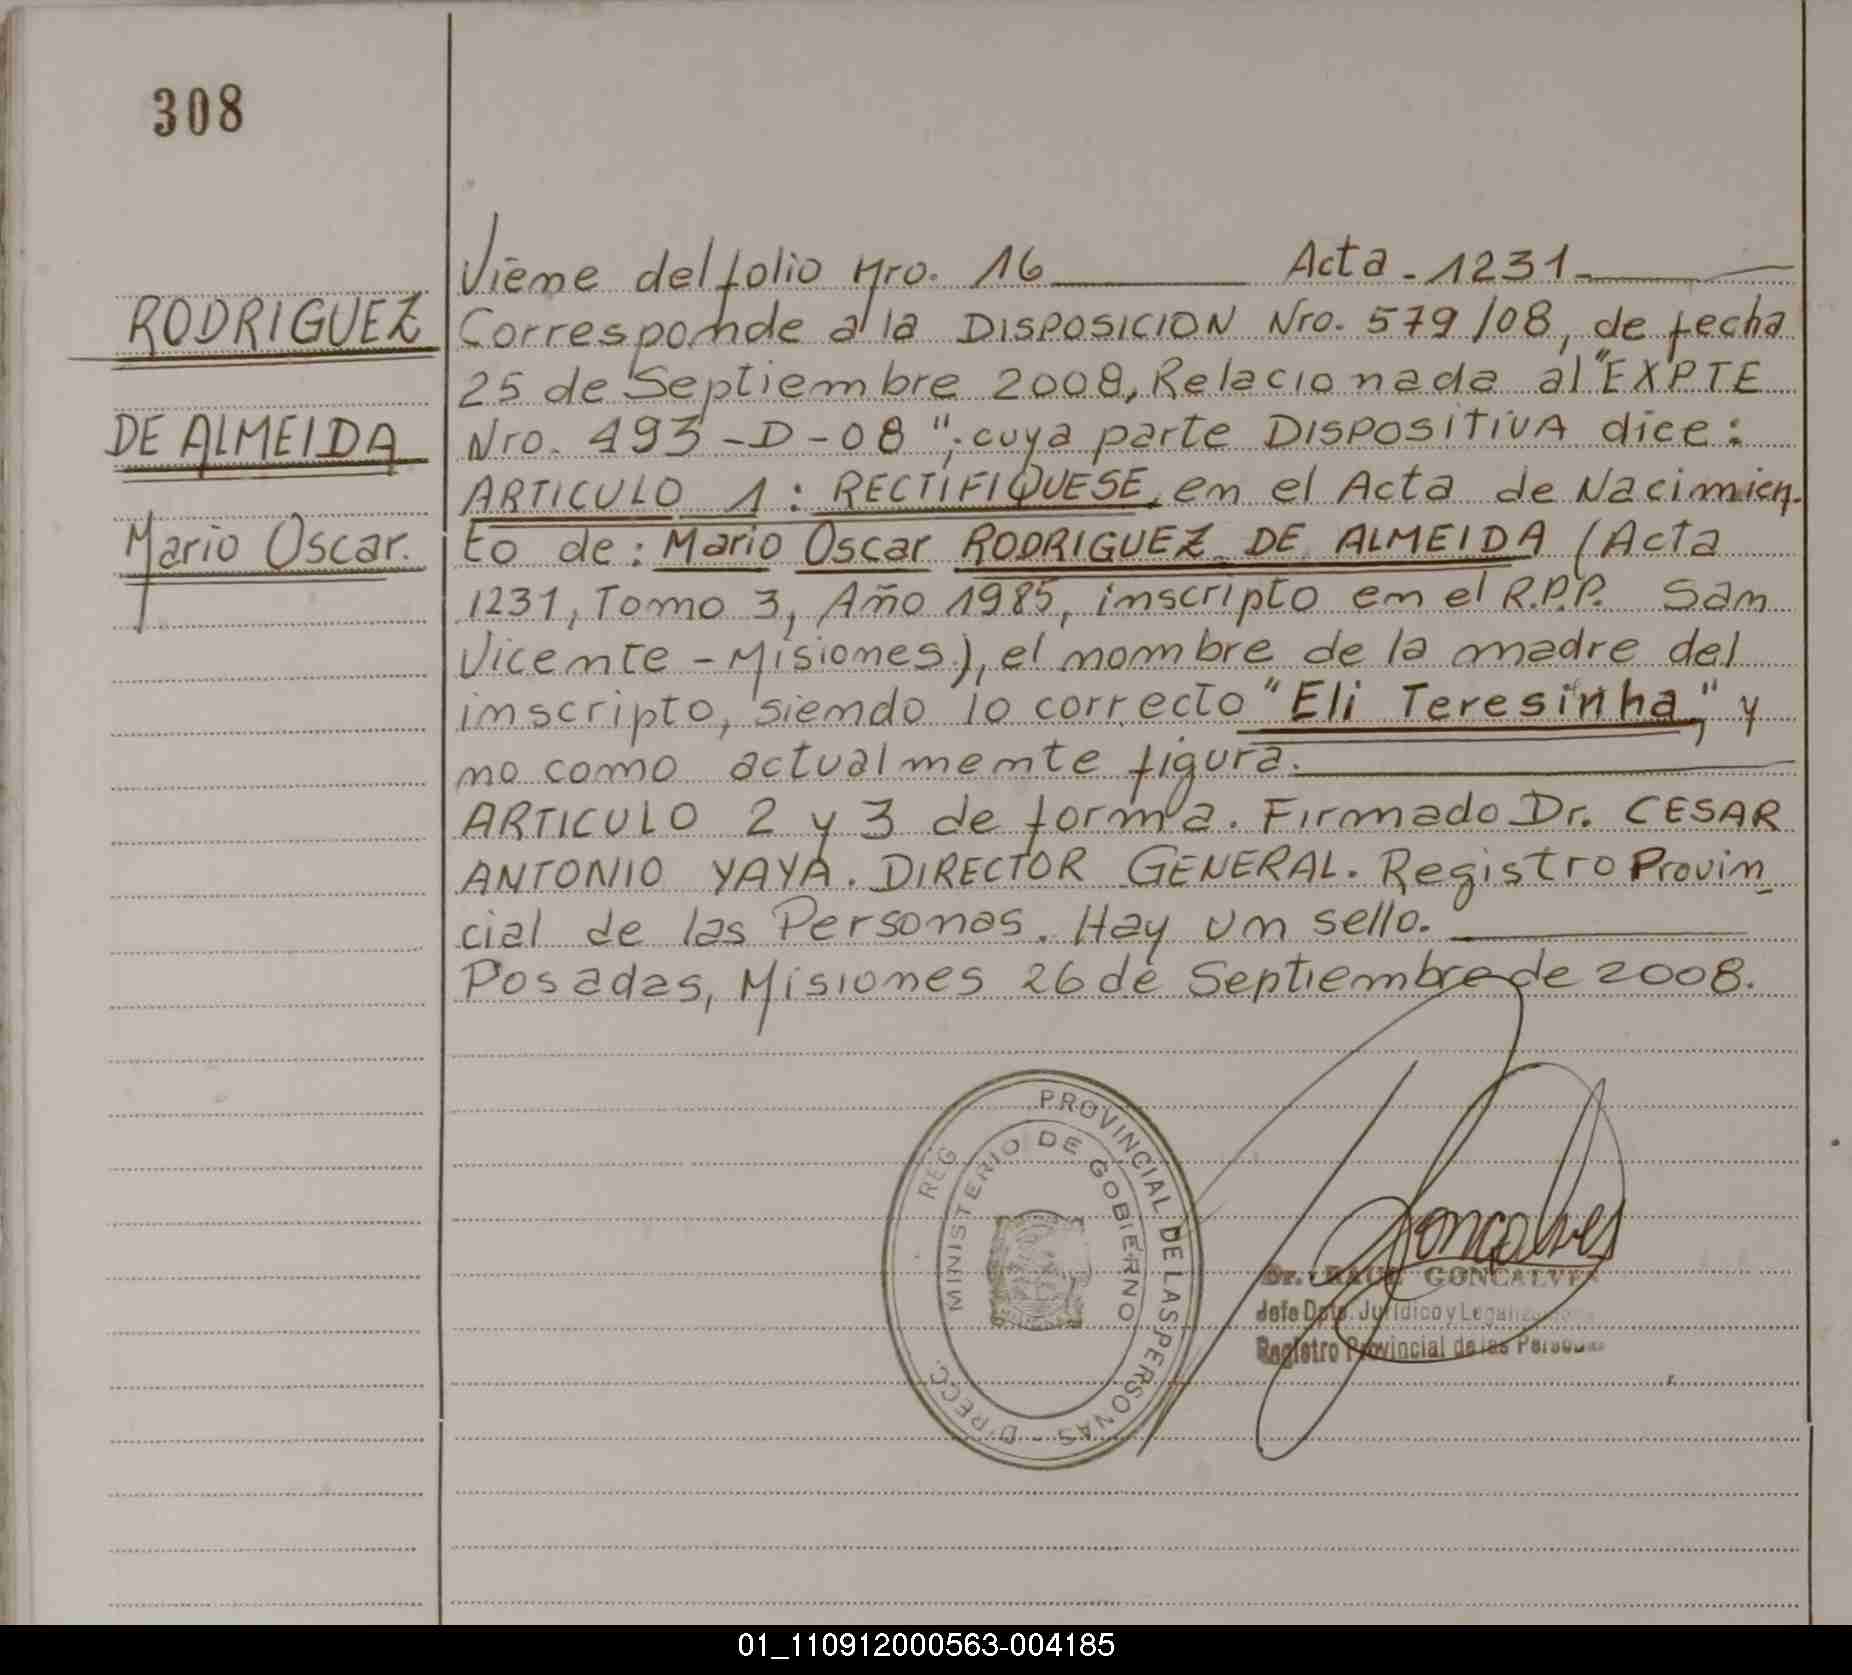 308
RODRIGUEZ
DE ALMEIDA
Mario Oscar.
Viene del folio Nro. 16 Acta - 1231 -
Corresponde a la DISPOSICION Nro. 579/08, de fecha
25 de Septiembre 2008, Relacionada al "EXPTE
Nro. 493-D-08"; cuya parte DISPOSITIVA dice:
ARTICULO 1: RECTIFIQUESE, en el Acta de Nacimien-
to de: Mario Oscar RODRIGUEZ DE ALMEIDA (Acta
1231, Tomo 3, Año 1985, inscripto en el R.P.P. San
Vicente - Misiones), el nombre de la madre del
inscripto, siendo lo correcto "Eli Teresinha," y
no como actualmente figura.
ARTICULO 2 y 3 de forma. Firmado Dr. CESAR
ANTONIO YAYA. DIRECTOR GENERAL. Registro Provin-
cial de las Personas. Hay un sello.
Posadas, Misiones 26 de Septiembre de 2008.
DIRECC. REG PROVINCIAL DE LAS PERSONAS -
MINISTERIO DE GOBIERNO
Goncalves
Dr. RAUL GONCALVES
Jefe Dpto. Jurídico y
Registro Provincial de las Personas
01_110912000563-004185